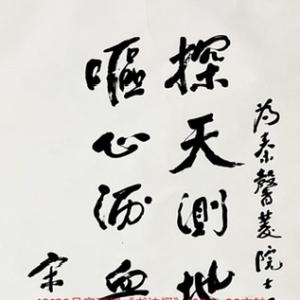 为秦馨菱院士
探天测地
嘔心沥血
宋